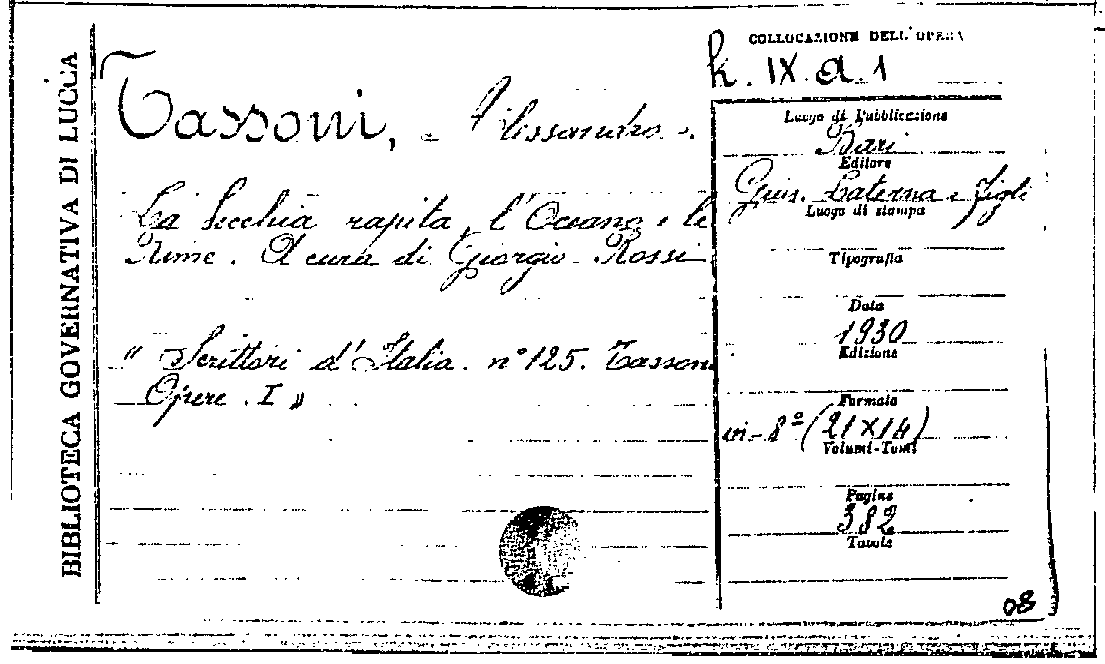 BIBLIOTECA GOVERNATIVA DI LUCCA
Tassoni, - Alessandro -.
La Secchia rapita, l'Oceano e le
Rime. A cura di Giorgio Rossi
" Scrittori d'Italia. n° 125. Tassoni
Opere. I "
COLLOCAZIONE DELL'OPERA
h. IX. a. 1
Luogo di Pubblicazione
Bari
Editore
Gius. Laterza e figli
Luogo di stampa
Tipografia
Data
1930
Edizione
Formato
in-8° (21X14)
Volumi-Tomi
Pagine
382
Tavole
08